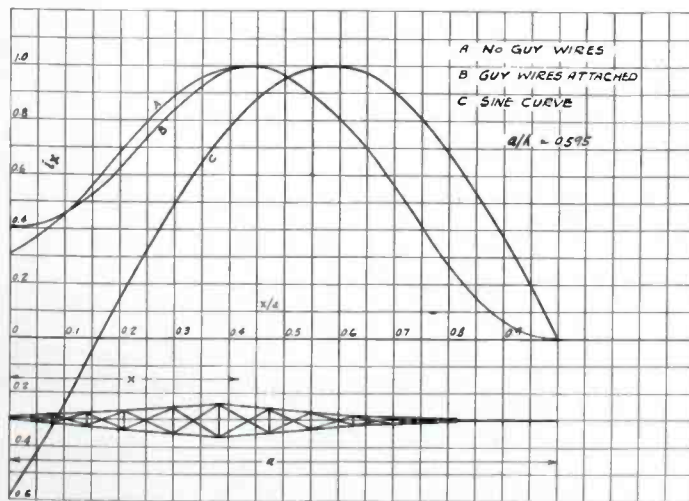 A NO GUY WIRES
B GUY WIRES ATTACHED
C SINE CURVE
a/λ = 0.595
1.0
0.8
0.6
0.4
0.2
0
0.2
0.4
0.6
ix
A
B
C
x/a
0.1
0.2
0.3
0.4
0.5
0.6
0.7
0.8
0.9
x
a